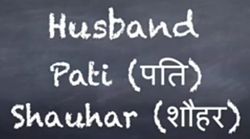 Husband
Pati (पति)
Shauhar (शौहर)